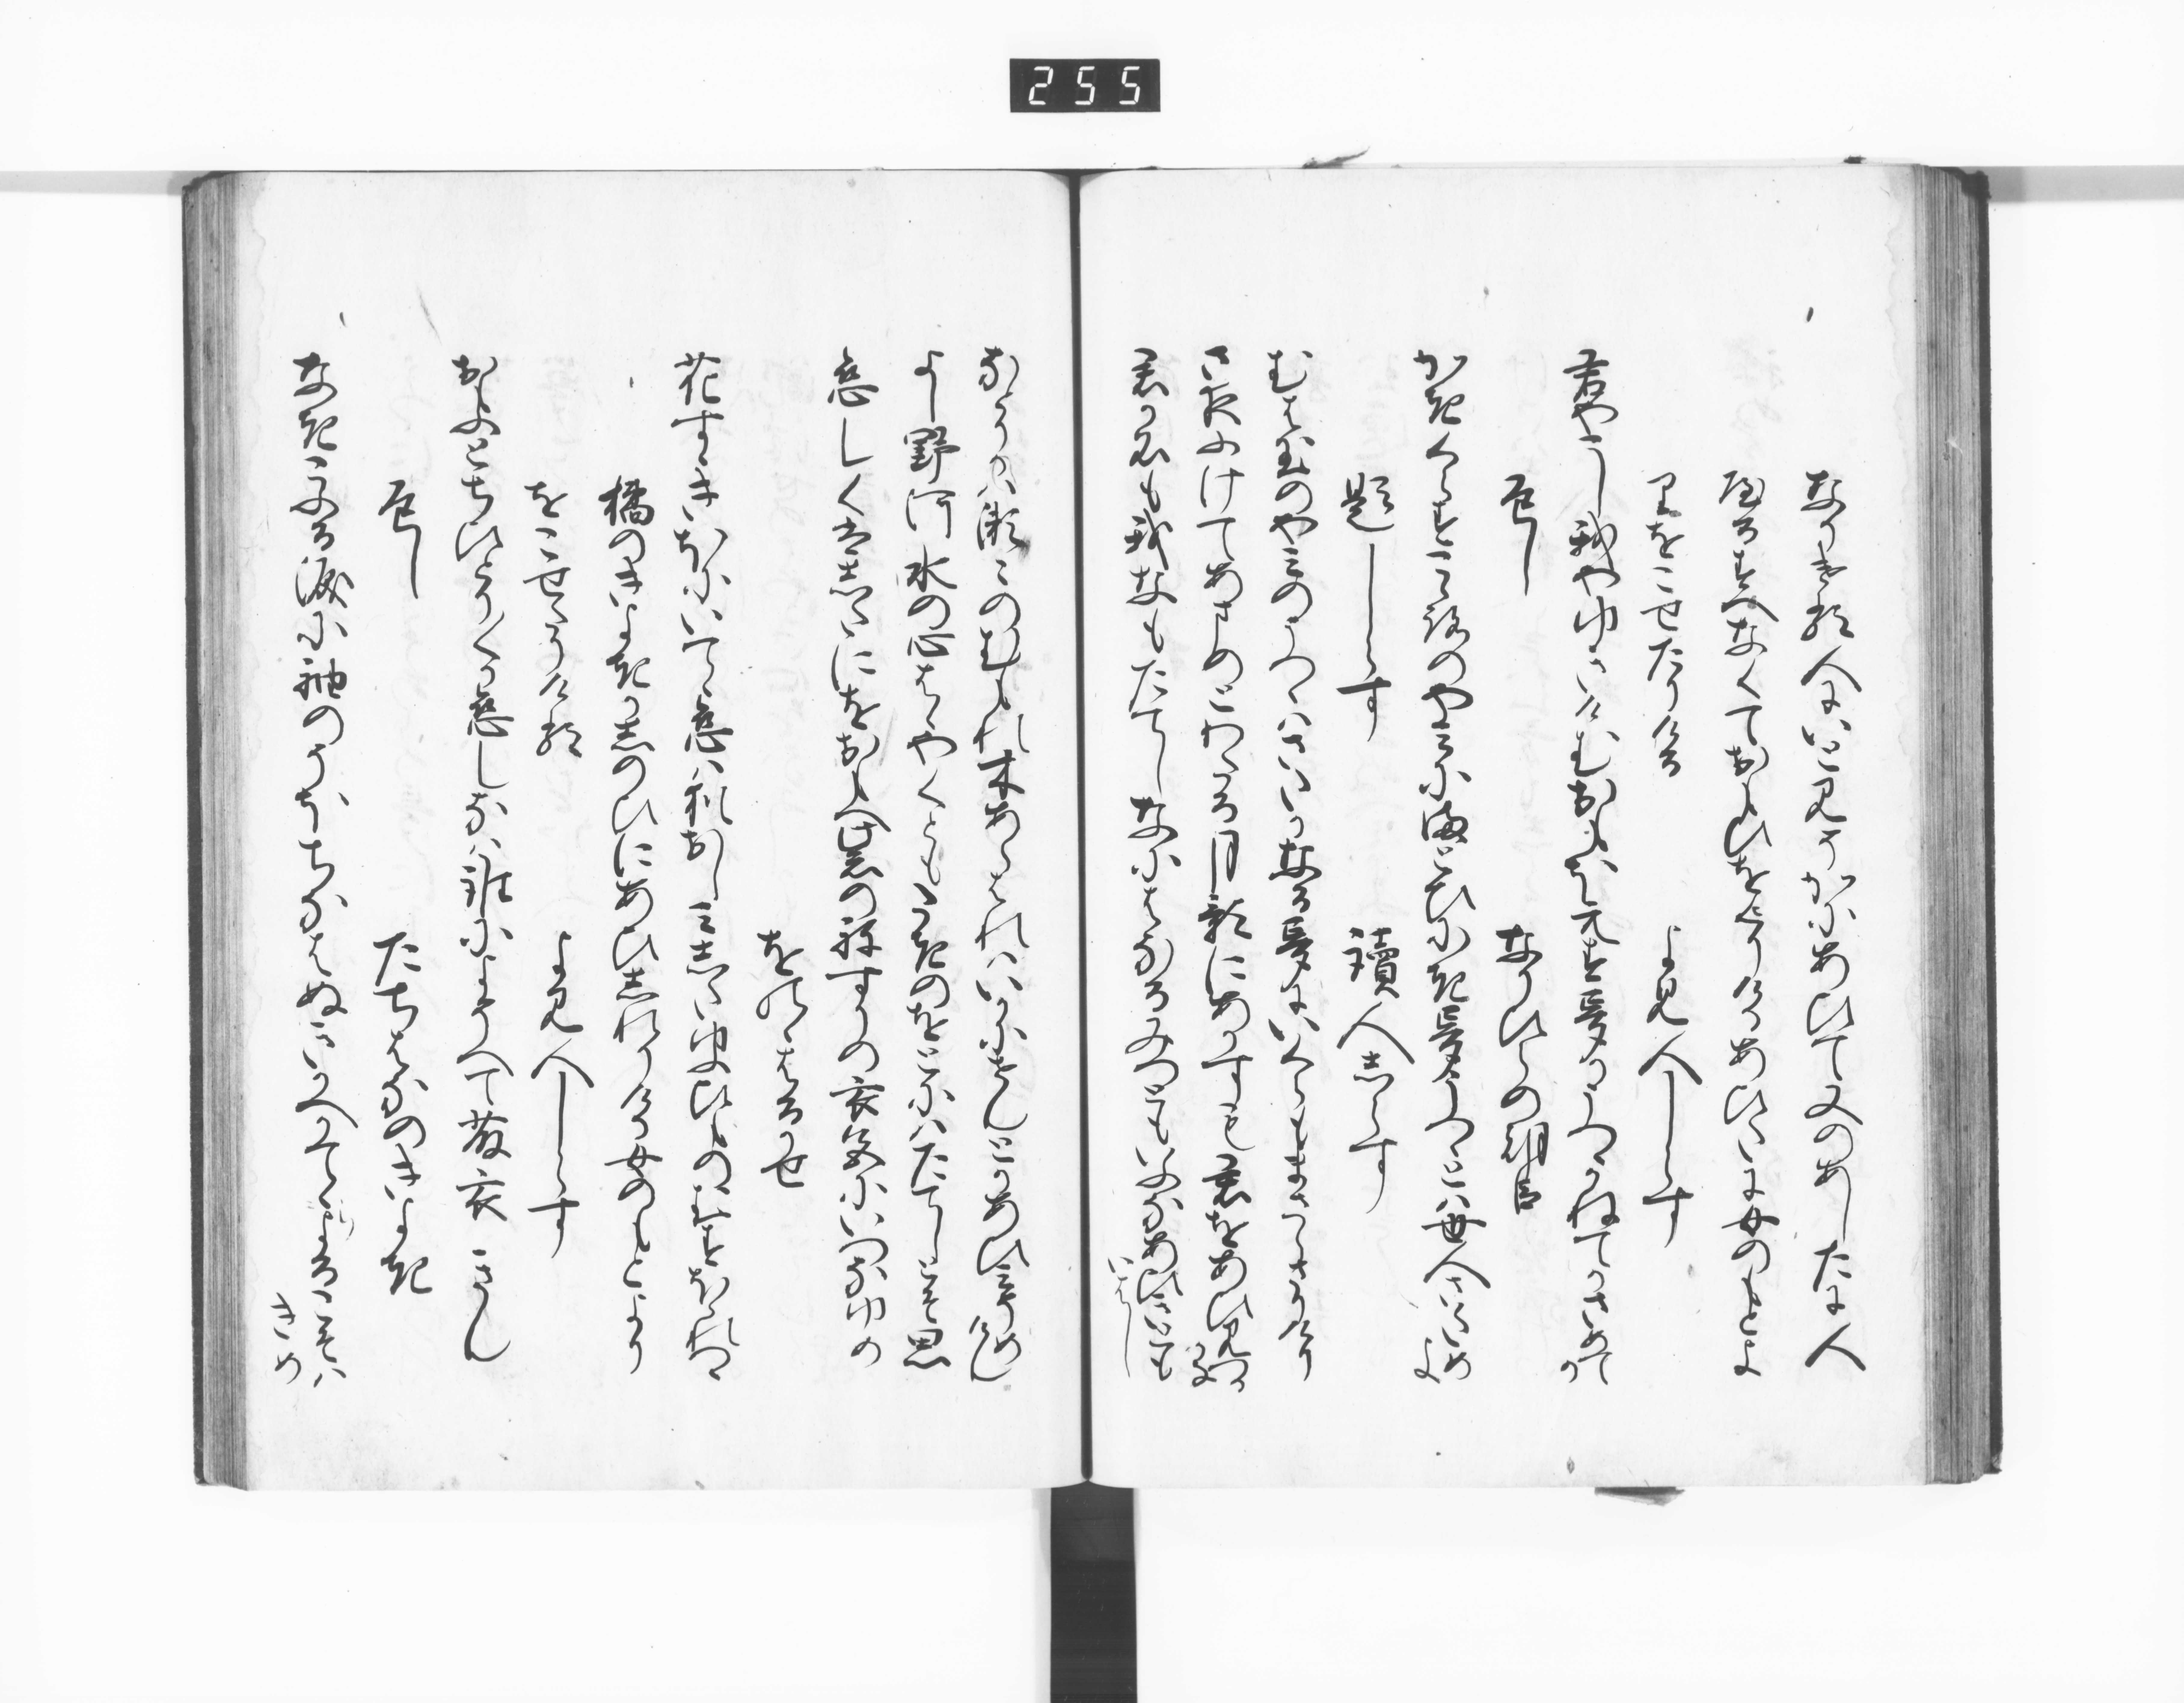 255
なりける人にいとみそかにあひて又のあしたに人
やるすへなくておもひをりけるあひたに女のもとよ
りをこせたりける
よみ人しらす
君やこし我やゆきけむおもほえす夢かうつゝかねてかさめてか
返し
なりひらの朝臣
かきくらす心のやみにまとひにき夢うつゝとは世人さためよ
題しらす
讀人しらす
むはたまのやみのうつゝはさたかなる夢にいくらもまさらさりけり
さ夜ふけてあまのとわたる月影にあかすも君をあひ見つるかな
君か名も我なもたてしなにはなるみつともいふなあひきとも
いはし
なとり河瀬ゝのむもれ木あらはれはいかにせんとかあひ見そめけん
よし野河水の心ははやくともたきのをとにはたてしとそ思
恋しくはしたにをおもへ紫のねすりの衣色にいつなゆめ
をのゝはるかせ
花すゝきほにいてゝ恋は名をおしみしたゆふひものむすほゝれつゝ
橘のきよきかしのひにあひしれりける女のもとより
をこせたりける
よみ人しらす
おもふとちひとり〳〵か恋しなは誰によそへて藤衣きん
返し
たちはなのきよき
なきこふる涙に袖のそほちなはぬきかへかてらよるこそは
きめ